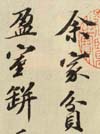 余家貧
盈室缾